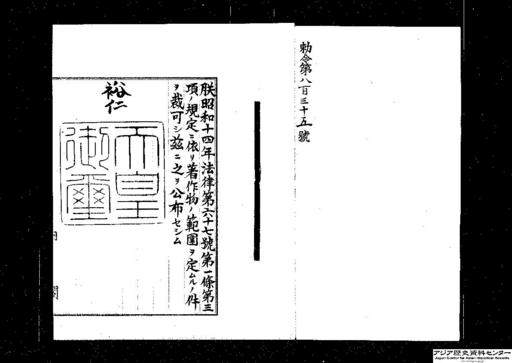 勅令第八百三十五號
朕昭和十四年法律第六十七號第一條第三
項ノ規定ニ依リ著作物ノ範圍ヲ定ムルノ件
ヲ裁可シ茲ニ之ヲ公布セシム
裕仁
天皇
御璽
内閣
アジア歴史資料センター
Japan Center for Asian Historical Records